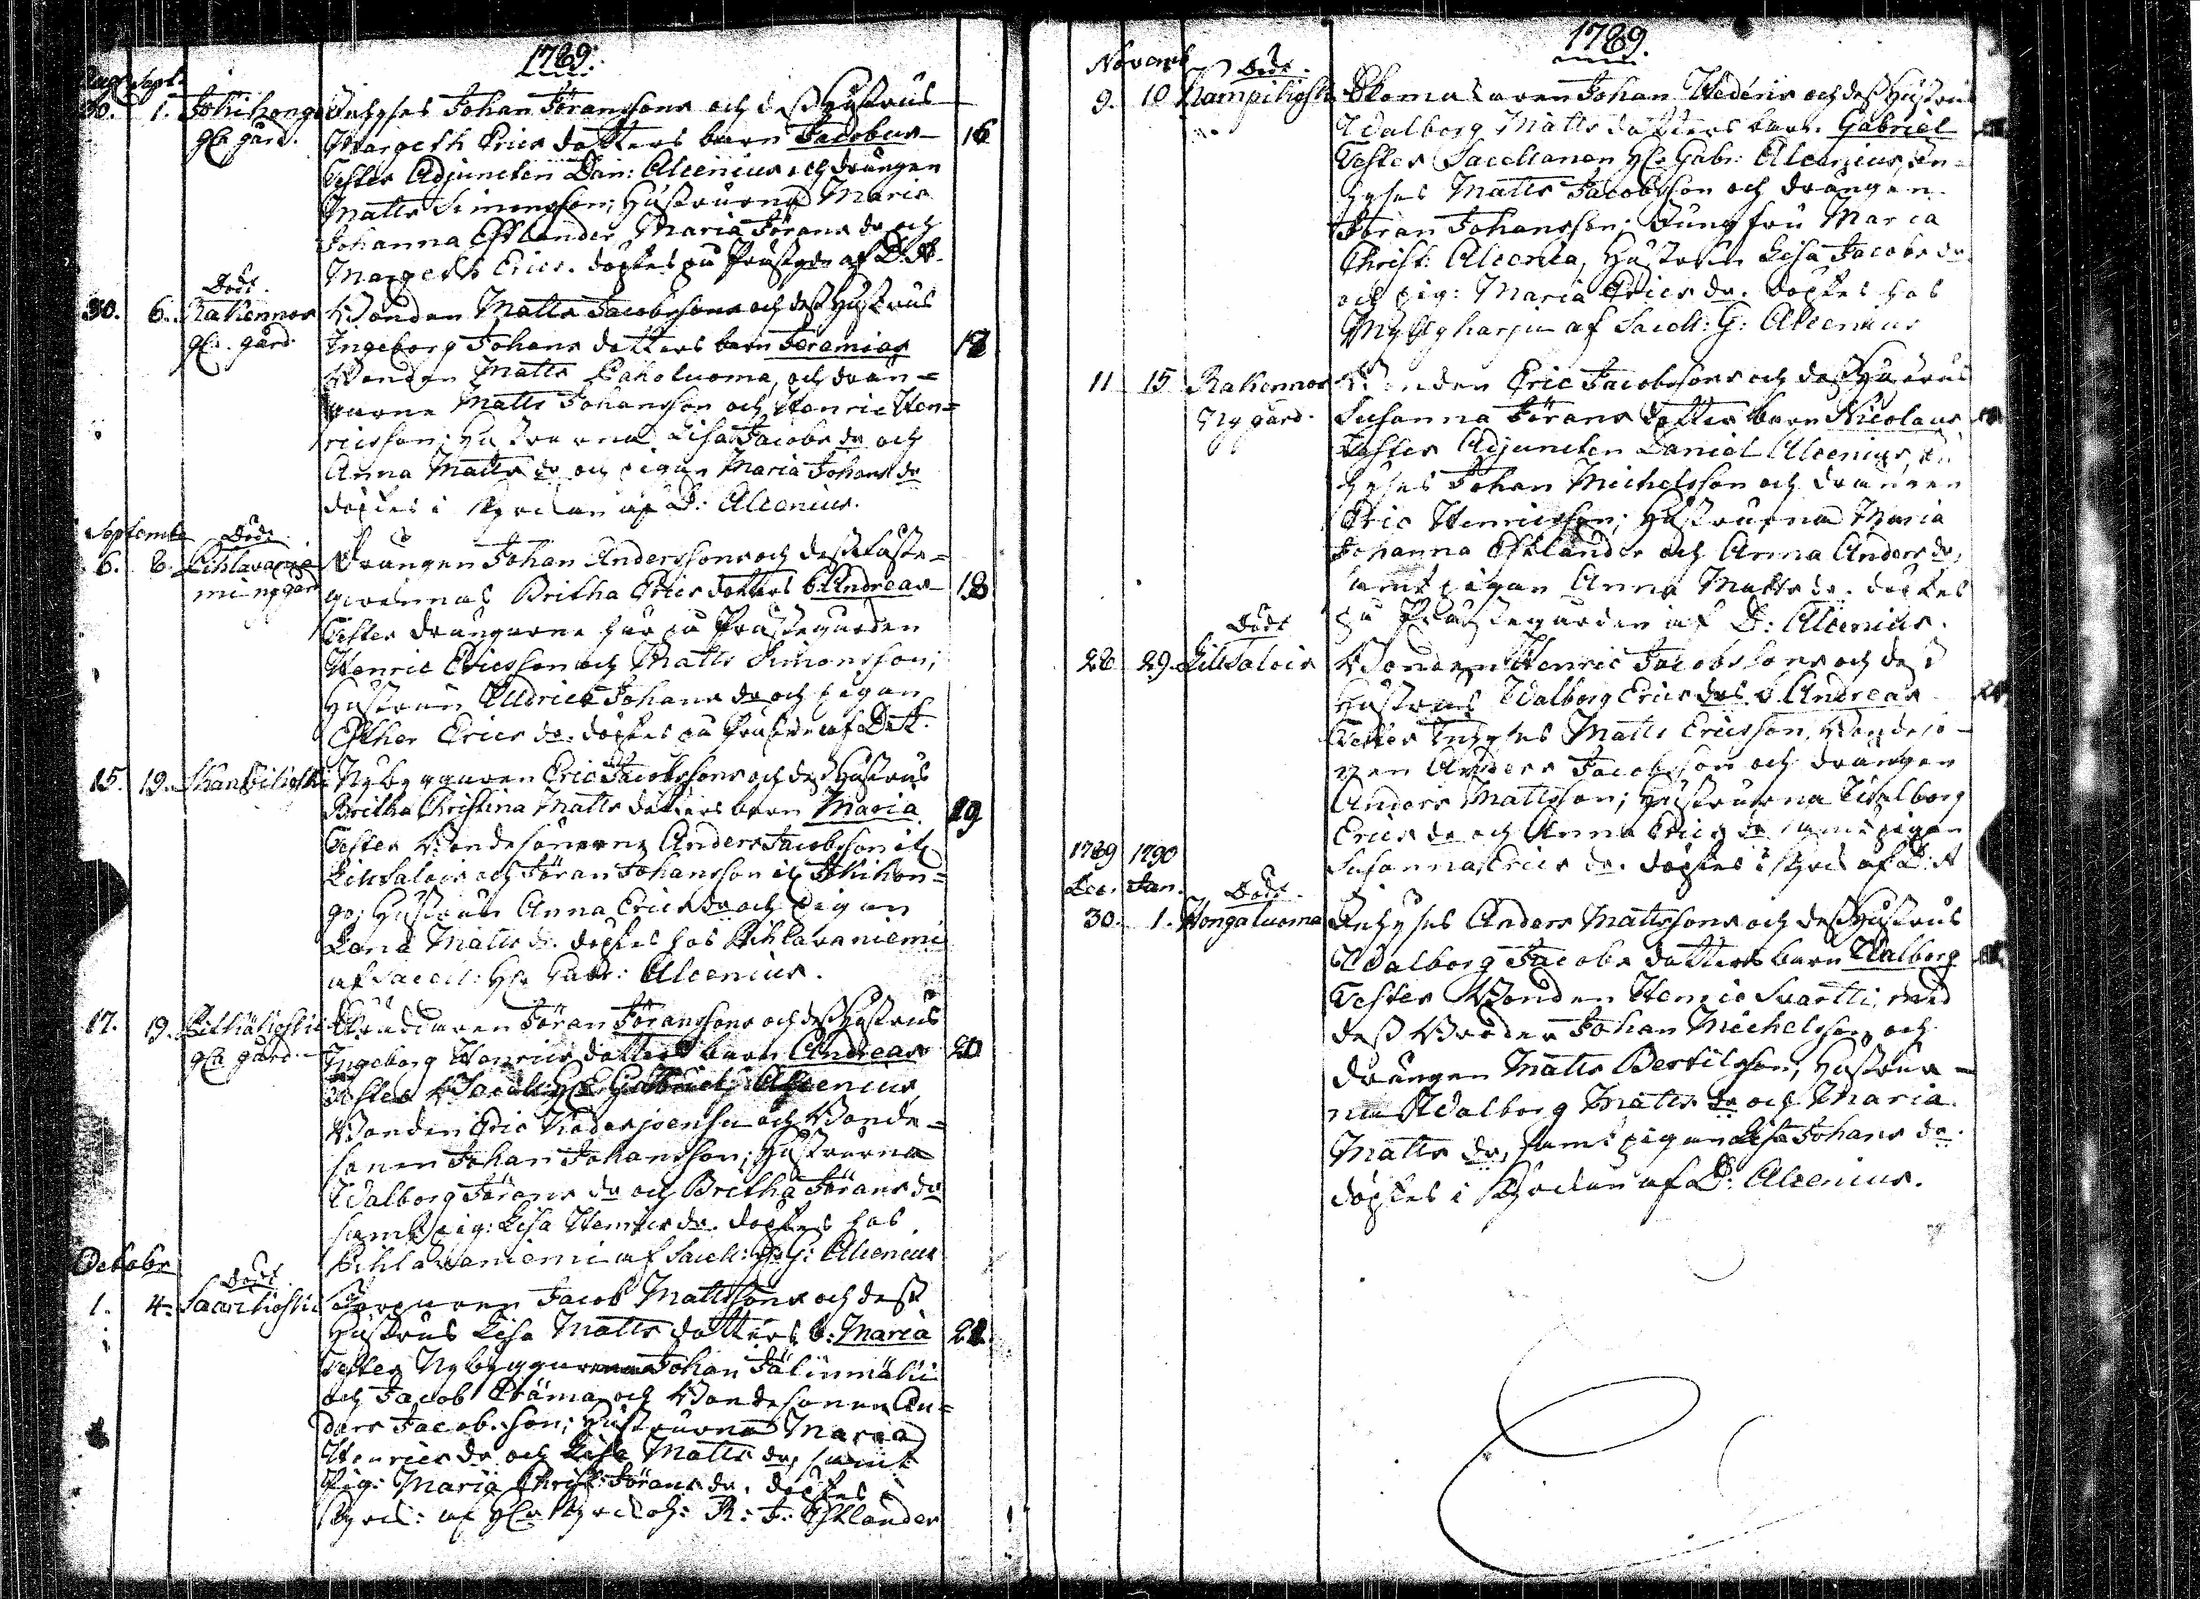 1789.
Aug. Sept.
30. 1. Jokihonga Inhyses Johan Jöranssons och dess Hustrus
gla gård. Margeth Erics dotters barn Jacobus 16
Testes Adjuncten Dan: Alcenius och drängen
Matts Simonsson; Hustrurna Maria
Johanna Estlander, Maria Jörans dr och
Margeth Erics. döptes på Prästgdn af D. A.
Död.
30. 6. Rakennos Bonden Matts Jacobssons och dess Hustrus
gla. gård. Ingeborg Johans dotters barn Jeremias 17
Bonden Matts Pakoluoma, och drän=
garne Matts Johansson och Henric Hen=
ricsson; Hustrurna Lisa Jacobs dr och
Anna Matts dr och pigan Maria Johans dr
döptes i Kyrckan af D: Alcenius.
Septembr Död.
6. 8. Pihlavanie Drängen Johan Anderssons och dess Fäste=
mi nygård qwinnas Britha Erics dotters b. Andreas 18
Testes drängarne här på Prästegården
Henric Ericsson och Matts Simonsson;
Hustrun Uldrica Johans dr och pigan
Esther Erics dr. döptes på Prästgdn af D: A.
15. 19. Nybyggaren Eric Jacobssons och dess Hustrus
Britha Christina Matts dotters barn Maria 19
Testes Bondesönerne Anders Jacobsson
Lillsalois och Jöran Johansson Jokihon=
go; Hustrun Anna Erics dr och Pigan
Lena Matts dr. döptes hos Pihlavaniemi
af Sacell: Hr Gabr: Alcenius.
17. 19. Jöran Jöranssons och dess Hustrus
gla gård. Ingeborg Henrics dotters barn Andreas 20
Testes Sacell: Hr Gabriel Alcenius
Bonden Eric och Bonde=
sonen Johan Johansson; Hustrurna
Walborg Jörans dr och Britha Jörans dr
samt pig: Lisa Henrics dr. döptes hos
Pihlavaniemi af Sacell: Hr G: Alcenius
Octobr
Död.
1. 4. Torparen Jacob Mattssons och dess
Hustrus Lisa Matts dotters b: Maria 21.
Testes Nybyggaren Johan
och Jacob och Bondesonen An=
ders Jacobsson; Hustrurna Maria
Henrics dr och Lisa Matts dr, samt
Pig: Maria Christ: Jörans dr. döptes i
Kyrck: af Hr Kyrckoh: R: J: Estlander
1789.
Novemb
Död.
9. 10 Johan och dess Hustrus
Walborg Matts dotters barn. Gabriel
Testes Sacellanen Hr Gabr: Alcenius, In=
hyses Matts Jacobsson och drängen
Jöran Johansson; Jungfru Maria
Christ: Alcenia, Hustrun Lisa Jacobs dr
och pig: Maria Erics dr. döptes hos
Myllyharju af Sacell: G: Alcenius
11 15 Rakennos Bonden Eric Jacobssons och dess Hustrus
Nygård. Susanna Jörans dotters barn Nicolaus
Testes Adjuncten Daniel Alcenius, In
hyses Johan Michelsson och drängen
Eric Henricsson; Hustrurna Maria
Johanna Estlander och Anna Anders dr,
samt pigan Anna Matts dr. döptes
på Prästegården af D: Alcenius.
Död
28 29. Lillsalois Bonden Henric Jacobssons och dess
Hustrus Walborg Erics drs b. Andreas
Testes Inhyses Matts Ericsson, Bondeso=
nen Anders Jacobsson och drängen
Anders Mattsson; Hustrurna Walborg
Erics dr och Anna Erics dr samt pigan
Susanna Erics dr. döptes i Kyrck af D: A
1789 1790
Dec. Jan. Död.
30. 1. Hongaluoma Inhyses Anders Mattssons och dess Hustrus
Walborg Jacobs dotters barn Walborg
Testes Bonden Henric Svartti, med
dess Broder Johan Michelsson och
drängen Matts Bertilsson, Hustrur=
na Walborg Matts dr och Maria
Matts dr, samt pigan Lisa Johans dr.
döptes i Kyrckan af D: Alcenius.